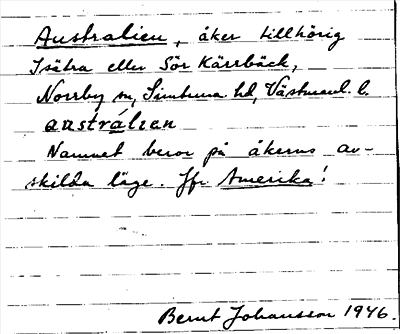 Australien, åker tillhörig
Isätra eller Sör Kärrbäck,
Norrby sn, Simtuna hd, Västmanl. l.
austrálien
Namnet beror på åkerns av-
skilda läge. Jfr Amerika!
Bernt Johansson 1946.